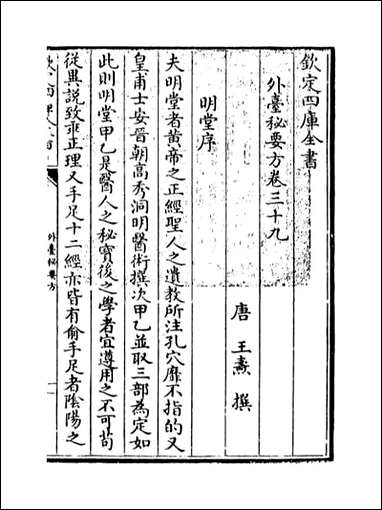 欽定四庫全書
外臺秘要方卷三十九
唐 王燾 撰
明堂序
夫明堂者黄帝之正經聖人之遺教所注孔穴靡不指的又
皇甫士安晉朝高秀洞明醫術撰次甲乙並取三部為定如
此則明堂甲乙是醫人之秘寶後之學者宜遵用之不可茍
從異說致乖正理又手足十二經亦皆有俞手足者陰陽之
外臺秘要方